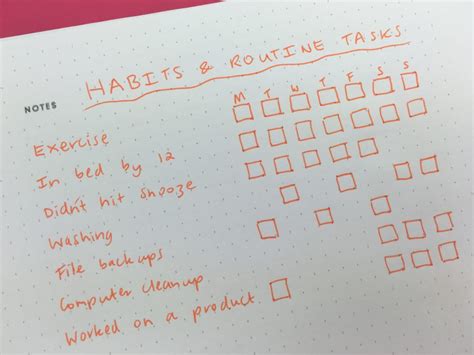 HABITS & ROUTINE TASKS
NOTES
M T W T F S S
Exercise
In bed by 12
Didn't hit snooze
Washing
File backups
Computer cleanup
Worked on a product